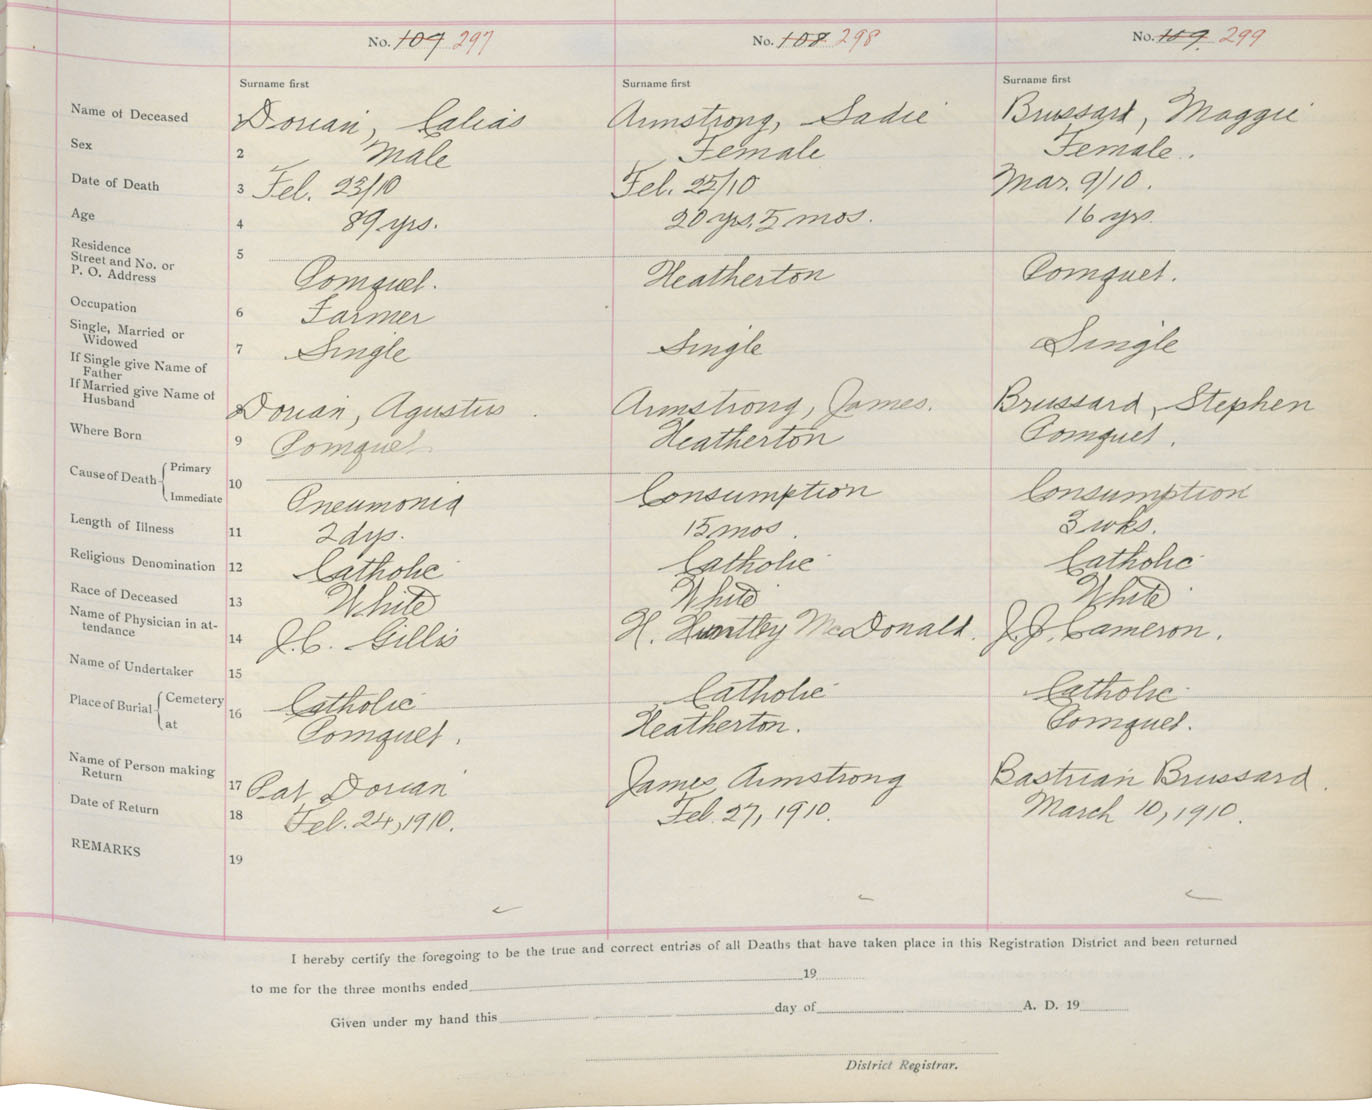 No. 107 297 No. 108 298 No. 109. 299
Surname first Surname first Surname first
Name of Deceased Dorian, Calias Armstrong, Sadie Brussard, Maggie
Sex 2 Male Female Female.
Date of Death 3 Feb. 23/10 Feb. 25/10 Mar. 9/10.
Age 4 89 yrs. 20 yrs. 5 mos. 16 yrs.
Residence
Street and No. or
P. O. Address 5 Pomquet. Heatherton Pomquet.
Occupation 6 Farmer
Single, Married or
Widowed 7 Single Single Single
If Single give Name of
Father
If Married give Name of
Husband 8 Dorian, Agustus. Armstrong, James. Brussard, Stephen
Where Born 9 Pomquet Heatherton Pomquet.
Cause of Death Primary
Immediate 10 Pneumonia Consumption Consumption
Length of Illness 11 2 dys. 15 mos. 3 wks.
Religious Denomination 12 Catholic Catholic Catholic
Race of Deceased 13 White White White
Name of Physician in at-
tendance 14 J.C. Gillis H. Huntley McDonald. J.J. Cameron.
Name of Undertaker 15
Place of Burial Cemetery 16 Catholic Catholic Catholic
at Pomquet. Heatherton. Pomquet.
Name of Person making
Return 17 Pat Dorian James Armstrong Bastrian Brussard.
Date of Return 18 Feb. 24, 1910. Feb. 27, 1910. March 10, 1910.
REMARKS 19
I hereby certify the foregoing to be the true and correct entries of all Deaths that have taken place in this Registration District and been returned
to me for the three months ended 19
Given under my hand this day of A. D. 19
District Registrar.